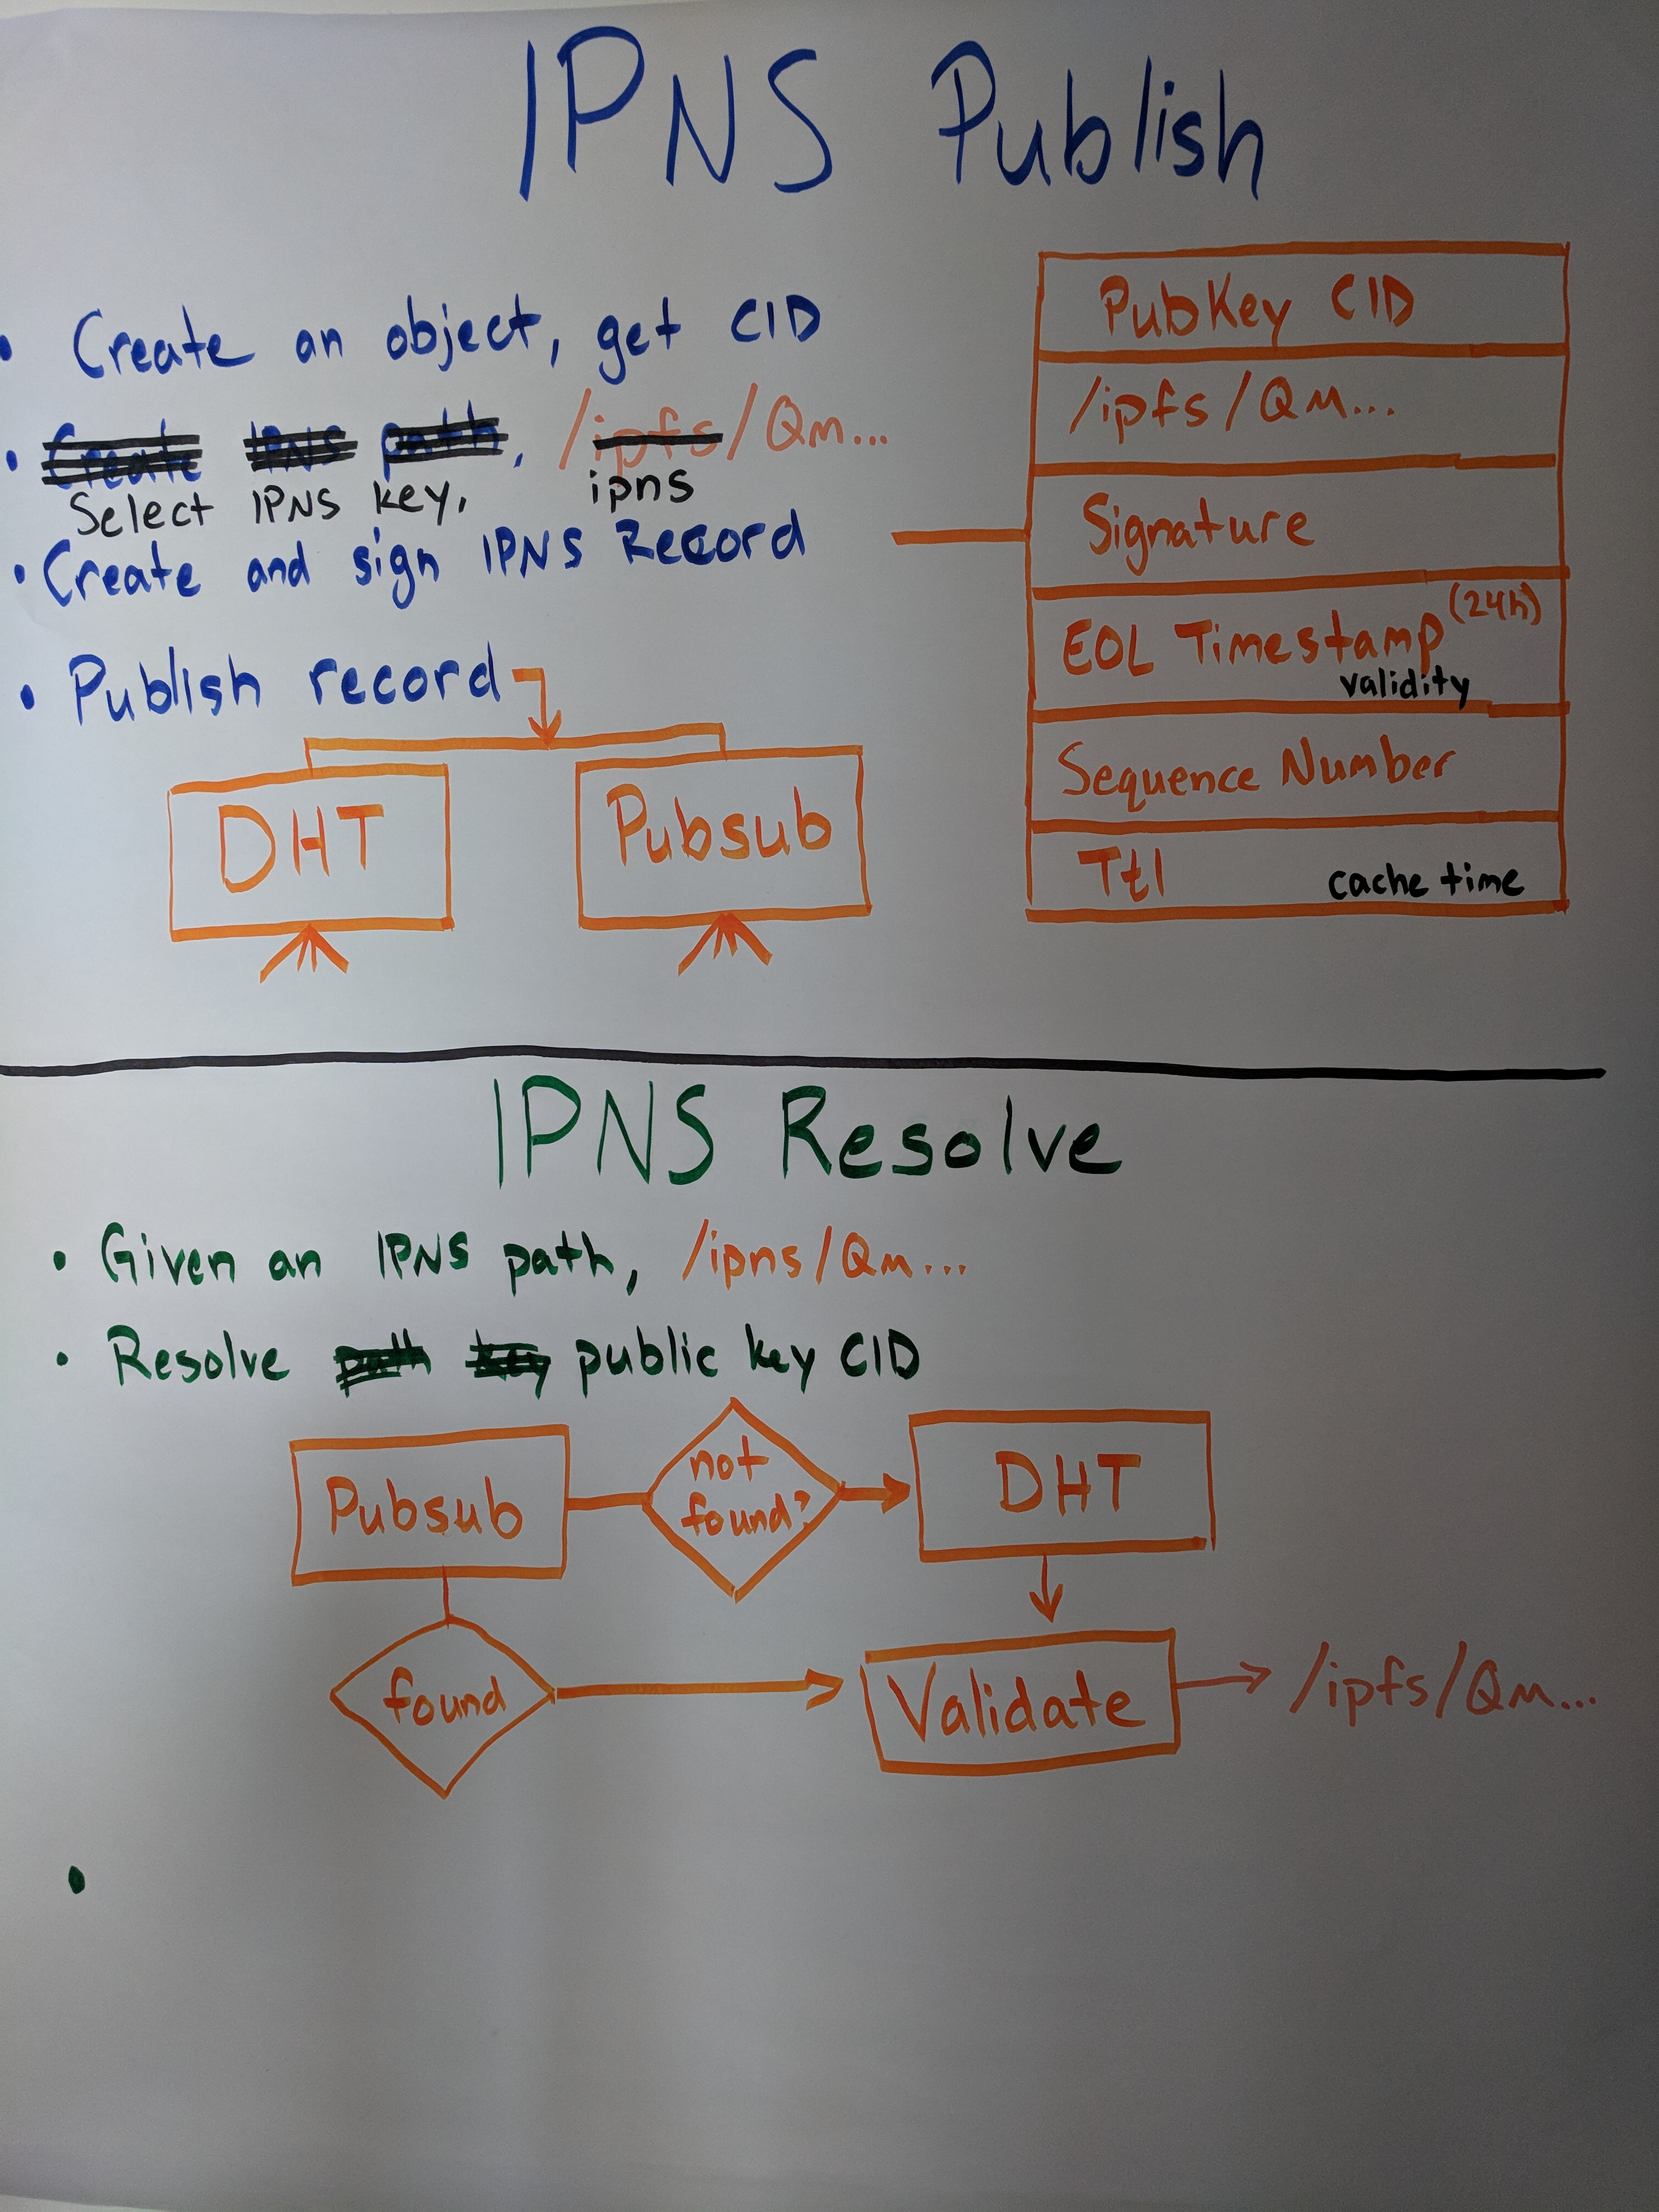 IPNS Publish
• Create an object, get CID
• Create IPNS path, /ipfs/Qm...
Select IPNS key, ipns
• Create and sign IPNS Record
• Publish record
DHT
Pubsub
PubKey CID
/ipfs/Qm...
Signature
EOL Timestamp (24h)
validity
Sequence Number
Ttl cache time
IPNS Resolve
• Given an IPNS path, /ipns/Qm...
• Resolve path key public key CID
Pubsub
not
found?
DHT
found
Validate
/ipfs/Qm...
•